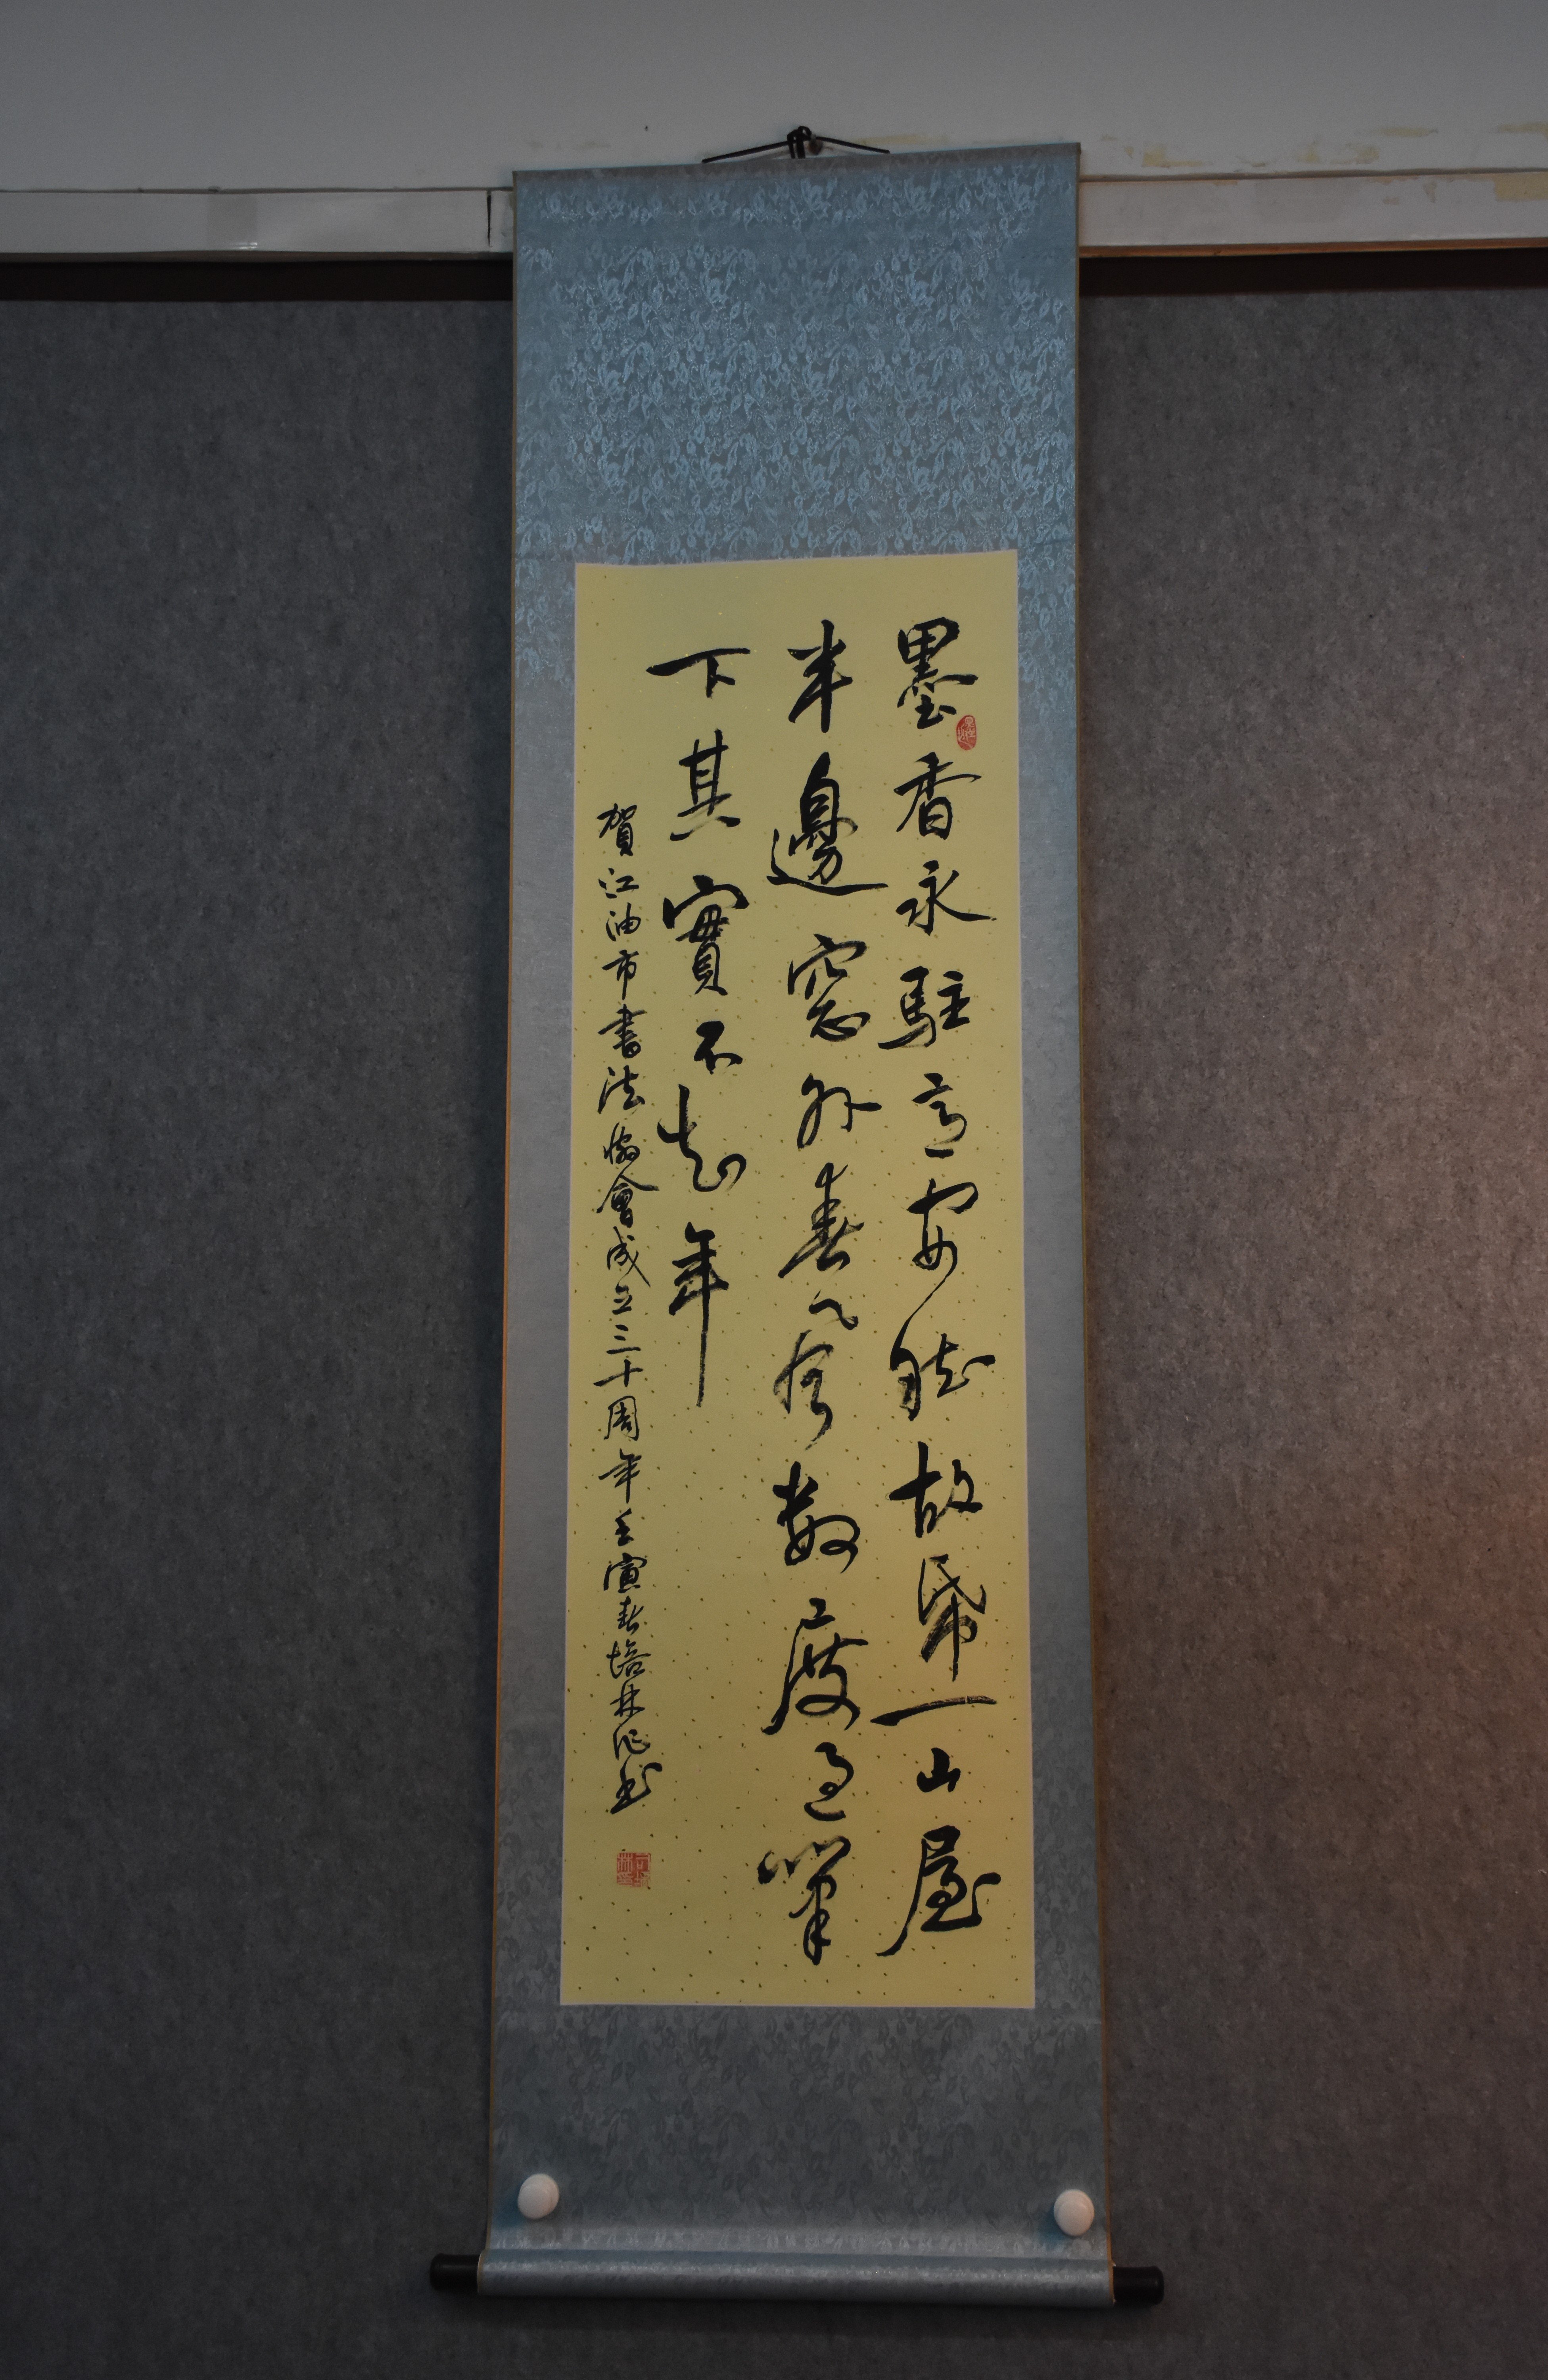 墨香永駐意安然故紙一山屋
半邊窓外春風今數度過筆
下其實不知年
賀江油市書法協會成立三十周年壬寅春培林作書